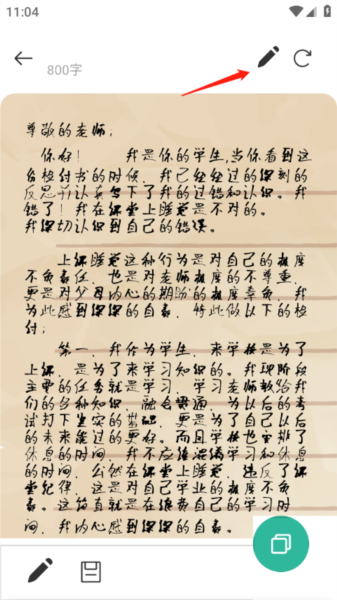 11:04
800字
尊敬的老师:
你好! 我是你的学生,当你看到这
份检讨书的时候,我已经经过的深刻的
反思并认真写下了我的过错和认识。我
错了!我在课堂上睡觉是不对的。
我深切认识到自己的错误。
上课睡觉这种行为是对自己的极度
不负责任,也是对老师极度的不尊重,
更是对父母内心的期盼的极度辜负,我
为此感到深深的自责,特此做以下的检
讨:
第一,我作为学生,来学校是为了
上课,是为了来学习知识的。我现阶段
主要的任务就是学习,学习老师教给我
们的各种知识,融会贯通,为以后的考
试打下坚实的基础,更是为了自己以后
的未来能过的更好。而且学校也安排了
休息的时间,我不应该混淆学习和休息
的时间,公然在课堂上睡觉,违反了课
堂纪律,这是对自己学业的极度不负
责。这简直就是在浪费自己的学习时
间,我内心感到深深的自责。